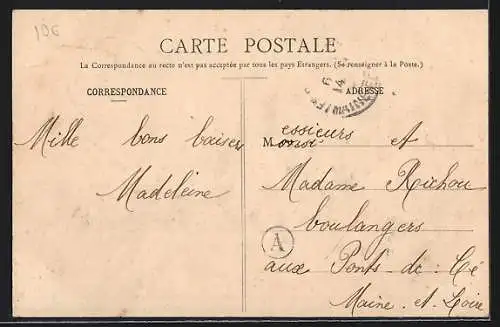 10€
CARTE POSTALE
La Correspondance au recto n'est pas acceptée par tous les pays Etrangers. (Se renseigner à la Poste.)
CORRESPONDANCE
Mille bons baisers
Madeleine
ADRESSE
Messieurs et
Madame Richou
boulangers
A
aux Ponts-de-Cé
Maine-et-Loire